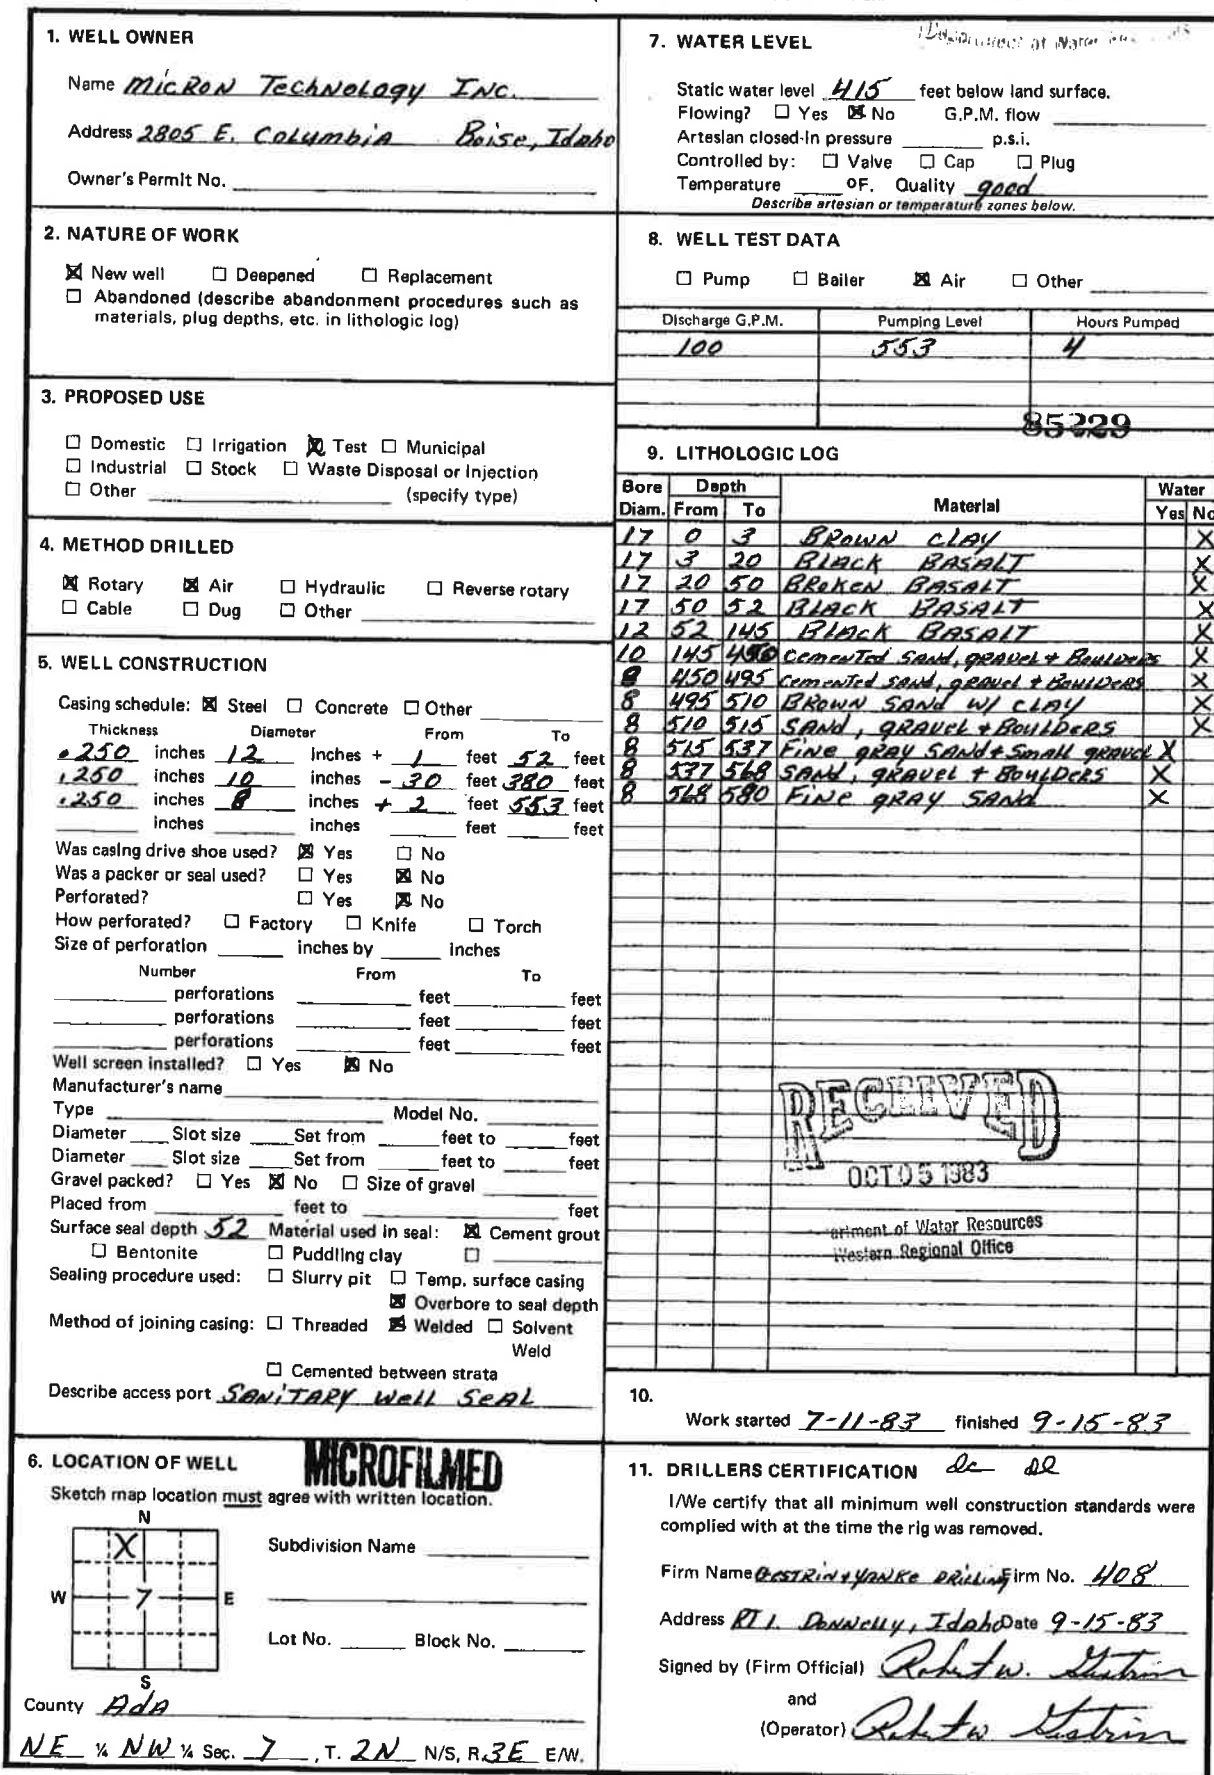 1. WELL OWNER
Name MicRoN TechNology INC.
Address 2805 E. Columbia Boise, Idaho
Owner's Permit No.
2. NATURE OF WORK
☒ New well ☐ Deepened ☐ Replacement
☐ Abandoned (describe abandonment procedures such as
materials, plug depths, etc. in lithologic log)
3. PROPOSED USE
☐ Domestic ☐ Irrigation ☒ Test ☐ Municipal
☐ Industrial ☐ Stock ☐ Waste Disposal or Injection
☐ Other (specify type)
4. METHOD DRILLED
☒ Rotary ☒ Air ☐ Hydraulic ☐ Reverse rotary
☐ Cable ☐ Dug ☐ Other
5. WELL CONSTRUCTION
Casing schedule: ☒ Steel ☐ Concrete ☐ Other
Thickness Diameter From To
.250 inches 12 inches + 1 feet 52 feet
.250 inches 10 inches - 30 feet 380 feet
.250 inches 8 inches + 2 feet 553 feet
inches inches feet feet
Was casing drive shoe used? ☒ Yes ☐ No
Was a packer or seal used? ☐ Yes ☒ No
Perforated? ☐ Yes ☒ No
How perforated? ☐ Factory ☐ Knife ☐ Torch
Size of perforation inches by inches
Number From To
perforations feet feet
perforations feet feet
perforations feet feet
Well screen installed? ☐ Yes ☒ No
Manufacturer's name
Type Model No.
Diameter Slot size Set from feet to feet
Diameter Slot size Set from feet to feet
Gravel packed? ☐ Yes ☒ No ☐ Size of gravel
Placed from feet to feet
Surface seal depth 52 Material used in seal: ☒ Cement grout
☐ Bentonite ☐ Puddling clay ☐
Sealing procedure used: ☐ Slurry pit ☐ Temp. surface casing
☒ Overbore to seal depth
Method of joining casing: ☐ Threaded ☒ Welded ☐ Solvent
Weld
☐ Cemented between strata
Describe access port SANiTARY well SeAL
6. LOCATION OF WELL MICROFILMED
Sketch map location must agree with written location.
N
X
W 7 E
S
Subdivision Name
Lot No. Block No.
County AdA
NE ¼ NW ¼ Sec. 7, T. 2N N/S, R. 3E E/W.
7. WATER LEVEL
Department of Water
Static water level 415 feet below land surface.
Flowing? ☐ Yes ☒ No G.P.M. flow
Artesian closed-in pressure p.s.i.
Controlled by: ☐ Valve ☐ Cap ☐ Plug
Temperature ºF. Quality good
Describe artesian or temperature zones below.
8. WELL TEST DATA
☐ Pump ☐ Bailer ☒ Air ☐ Other
Discharge G.P.M. Pumping Level Hours Pumped
100 553 4
85229
9. LITHOLOGIC LOG
Bore Depth Water
Diam. From To Material Yes No
17 0 3 BROWN CLAY X
17 3 20 BLACK BASALT X
17 20 50 BROKEN BASALT X
17 50 52 BLACK BASALT X
12 52 145 BLACK BASALT X
10 145 450 CemenTed SAND, gRAVel + BoulDeRS X
8 450 495 Cemented SAND, gRAVel + BoulDeRS X
8 495 510 BROWN SAND W/ CLAY X
8 510 515 SAND, GRAVEL + BoulDeRS X
8 515 537 Fine gRAY SAND + Small gRAVel X
8 537 568 SAND, gRAVEL + BoulDeRS X
8 568 580 Fine gRAY SAND X
RECEIVED
OCT 05 1983
artment of Water Resources
Western Regional Office
10.
Work started 7-11-83 finished 9-15-83
11. DRILLERS CERTIFICATION
I/We certify that all minimum well construction standards were
complied with at the time the rig was removed.
Firm Name GESTRiN + YANKe DRilliNg Firm No. 408
Address RT 1. DoNNelly, Idaho Date 9-15-83
Signed by (Firm Official) Robert W. Gestrin
and
(Operator) Robert W. Gestrin